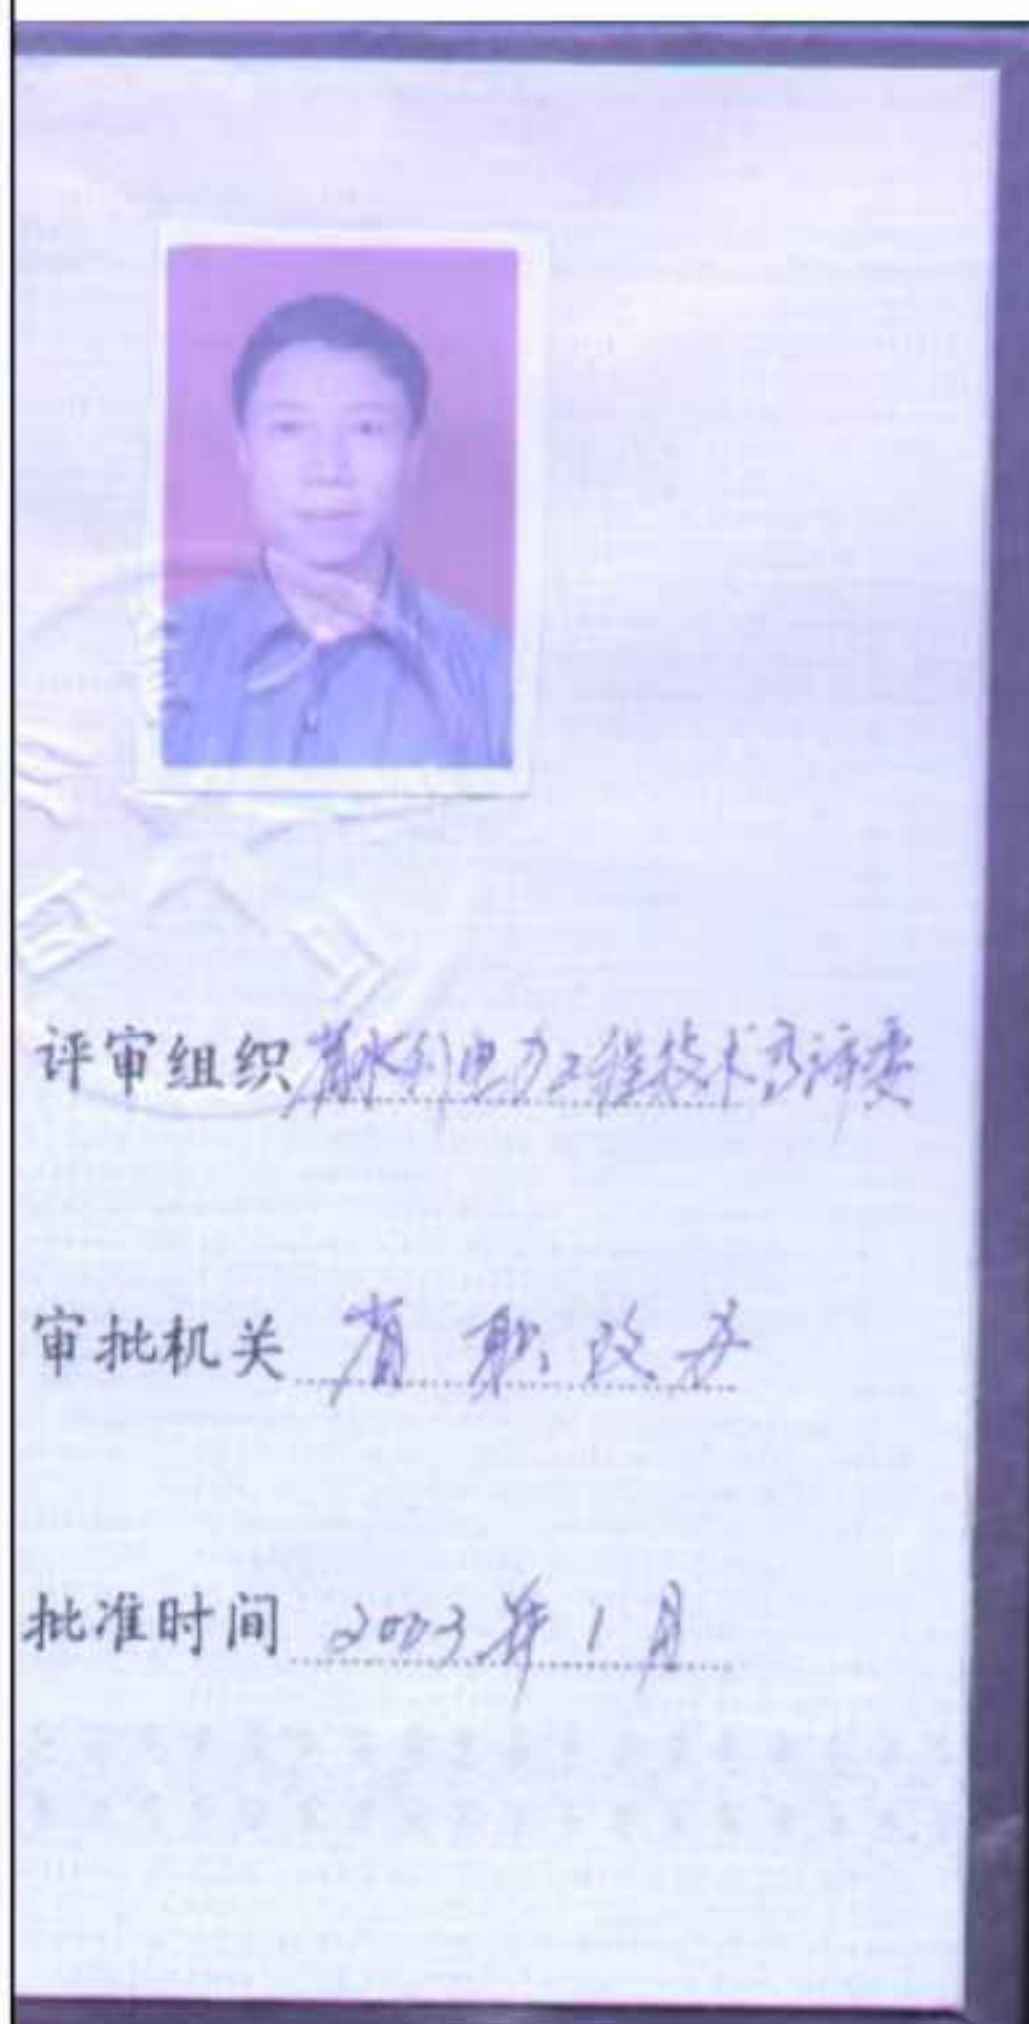 评审组织 省水利电力工程技术高评委
审批机关 省职改办
批准时间 2003年1月